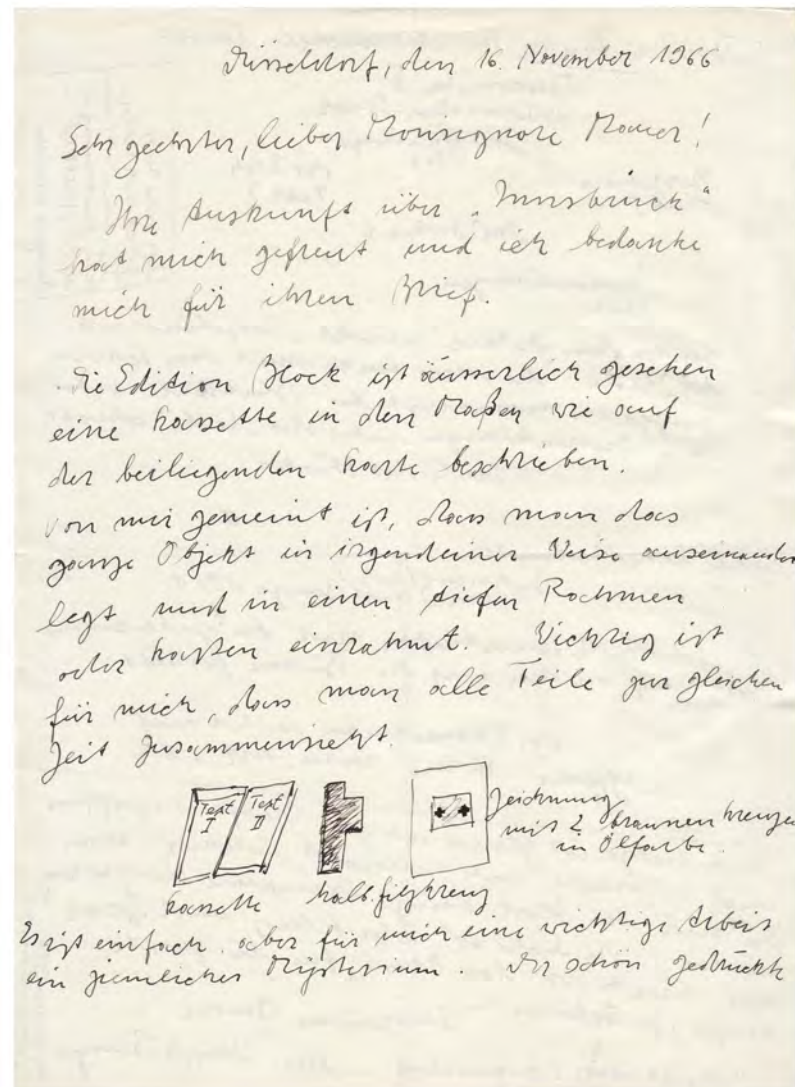 Düsseldorf, den 16. November 1966
Sehr geehrter, lieber Monsignore Mauer!
Ihre Auskunft über „Innsbruck“
hat mich gefreut und ich bedanke
mich für ihren Brief.
Die Edition Block ist äusserlich gesehen
eine Kassette in den Maßen wie auf
der beiliegenden Karte beschrieben.
Von mir gemeint ist, dass man das
ganze Objekt in irgendeiner Weise auseinander
legt und in einen tiefen Rahmen
oder Kasten einrahmt. Wichtig ist
für mich, dass man alle Teile zur gleichen
Zeit zusammensieht.
Text I Text II
Zeichnung
mit 2 braunen Kreuzen
in Ölfarbe.
Kassette halb. filzkreuz
Es ist einfach, aber für mich eine wichtige Arbeit
ein ziemliches Mysterium. Der schön gedruckte